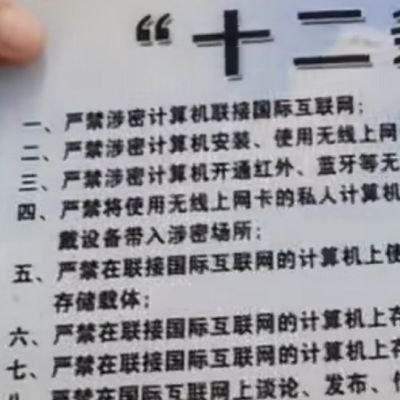 “十二
一、严禁涉密计算机联接国际互联网；
二、严禁涉密计算机安装、使用无线上网
三、严禁涉密计算机开通红外、蓝牙等无
四、严禁将使用无线上网卡的私人计算机
戴设备带入涉密场所；
五、严禁在联接国际互联网的计算机上使
存储载体；
六、严禁在联接国际互联网的计算机上存
七、严禁在联接国际互联网的计算机上存
八、严禁在国际互联网上谈论、发布、传